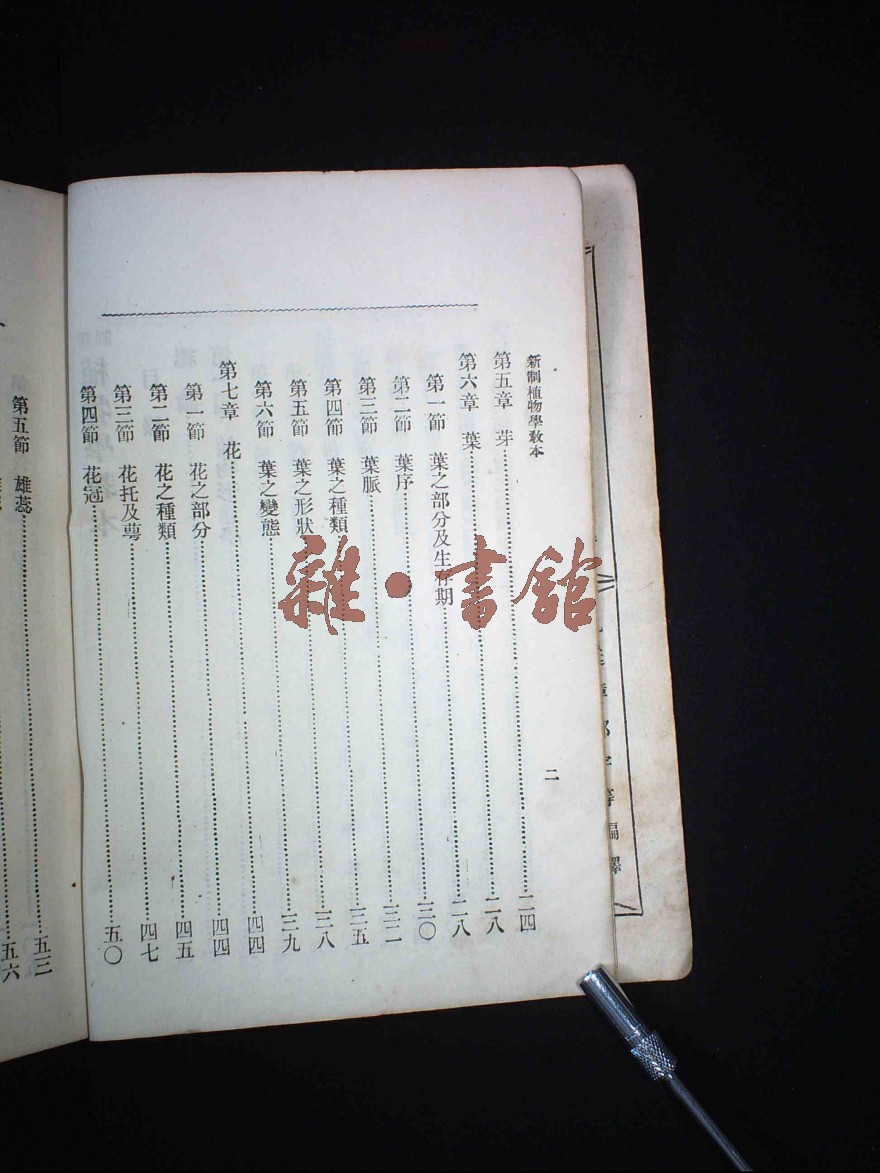 新制植物學教本
二
第五章　芽……二四
第六章　葉……二八
第一節　葉之部分及生存期……二八
第二節　葉序……三〇
第三節　葉脈……三二
第四節　葉之種類……三五
第五節　葉之形狀……三八
第六節　葉之變態……三九
第七章　花……四四
第一節　花之部分……四四
第二節　花之種類……四五
第三節　花托及萼……四七
第四節　花冠……五〇
第五節　雄蕊……五三
五六
等編譯
雜·書館